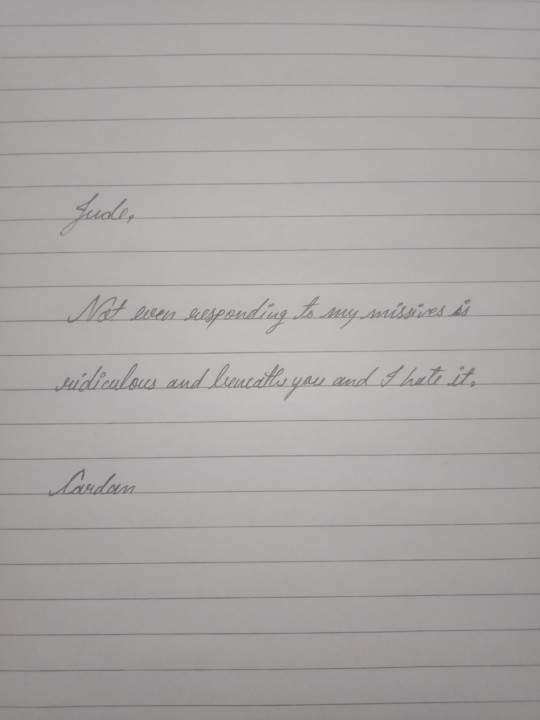 Jude,
Not even responding to my missives is
ridiculous and beneath you and I hate it.
Cardan